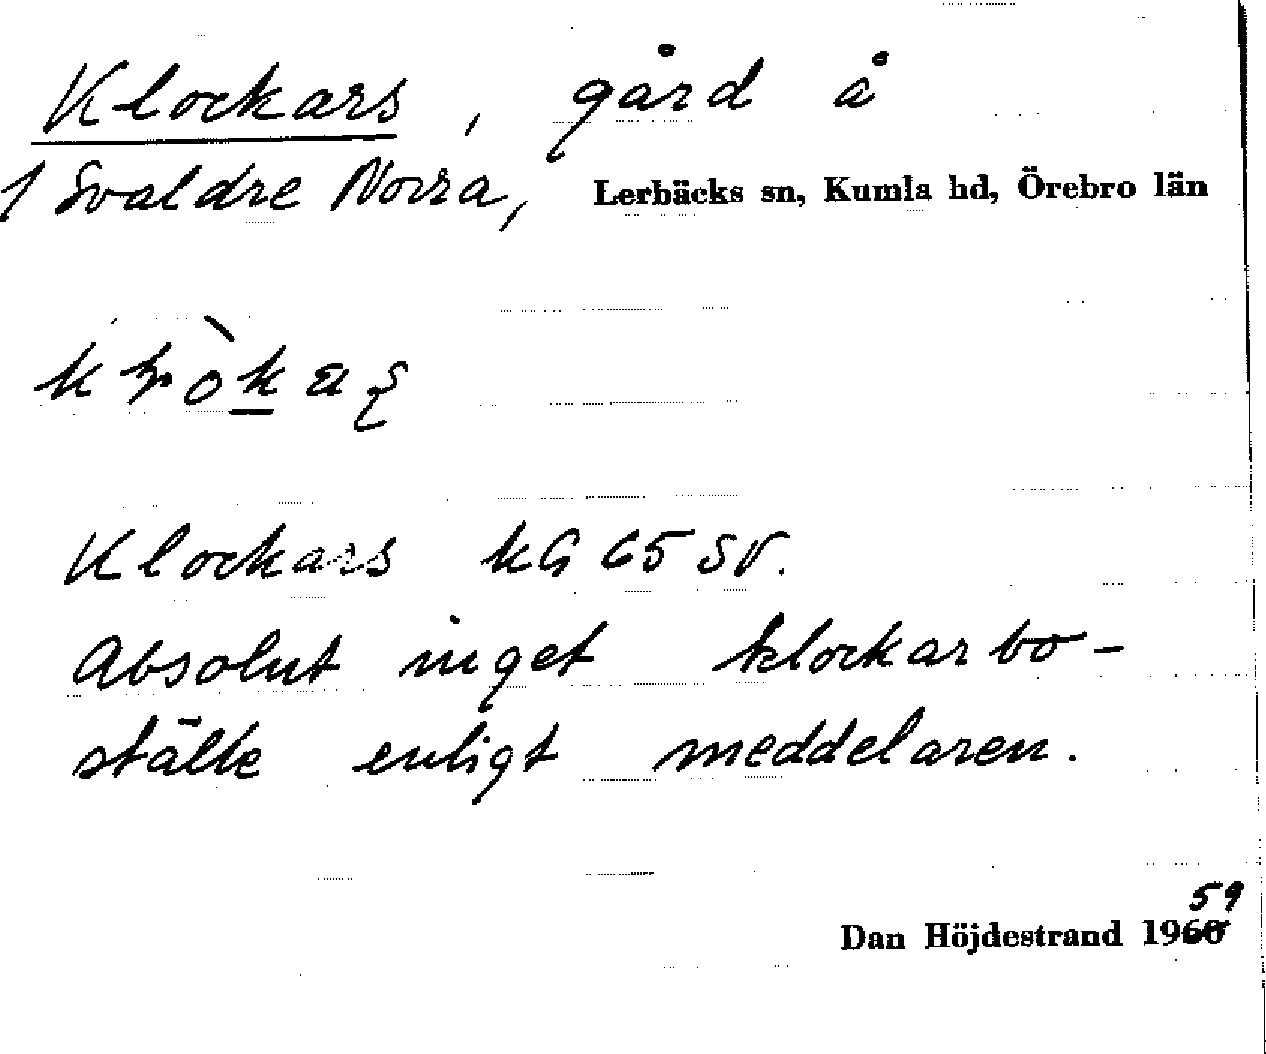 Klockars, gård å
1 Svaldre Norra, Lerbäcks sn, Kumla hd, Örebro län
Klockars KG 65 SV.
Absolut inget klockarbo-
ställe enligt meddelaren.
59
Dan Höjdestrand 1960